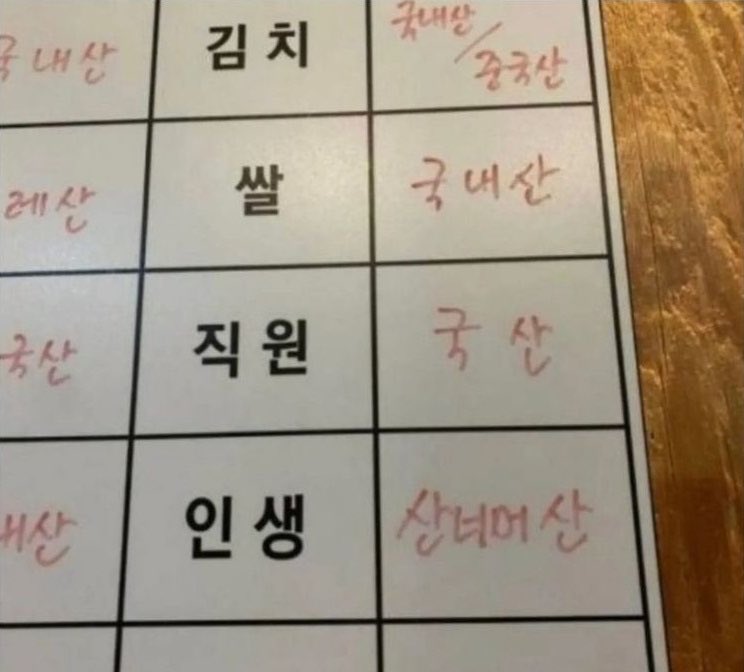 국내산 김치 국내산/중국산
쌀 국내산
국산 직원 국산
인생 산너머산